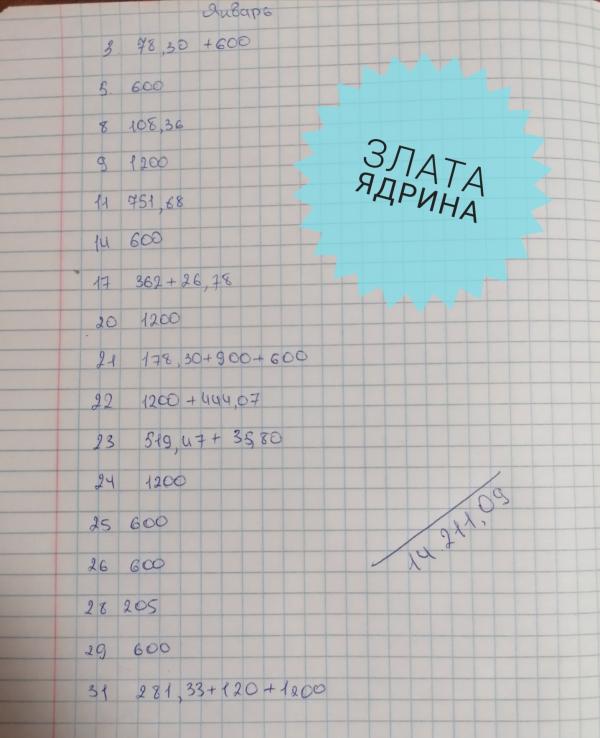 Январь
3 78,30 +600
5 600
8 108,36
9 1200
11 751,68
14 600
17 362+26,78
20 1200
21 178,30+900+600
22 1200+444,07
23 519,47+35,80
24 1200
25 600
26 600
28 205
29 600
31 281,33+120+1200
ЗЛАТА
ЯДРИНА
14.211,09